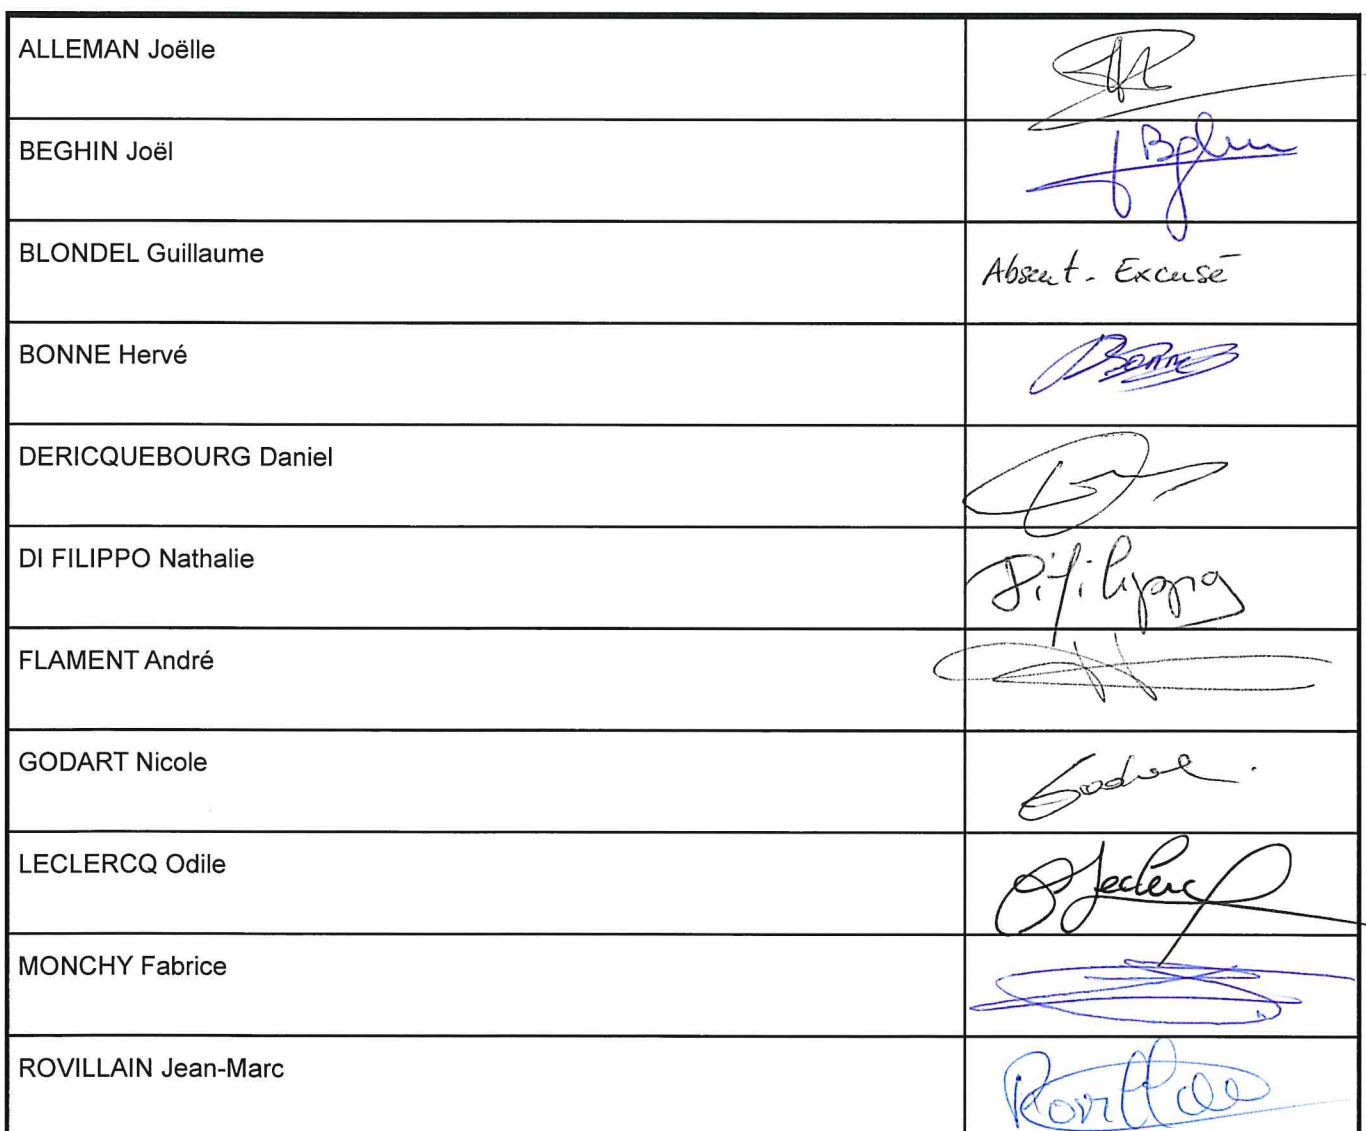 ALLEMAN Joëlle
BEGHIN Joël
BLONDEL Guillaume
Absent - Excusé
BONNE Hervé
Bonne
DERICQUEBOURG Daniel
DI FILIPPO Nathalie
Difilippo
FLAMENT André
GODART Nicole
LECLERCQ Odile
Leclerc
MONCHY Fabrice
ROVILLAIN Jean-Marc